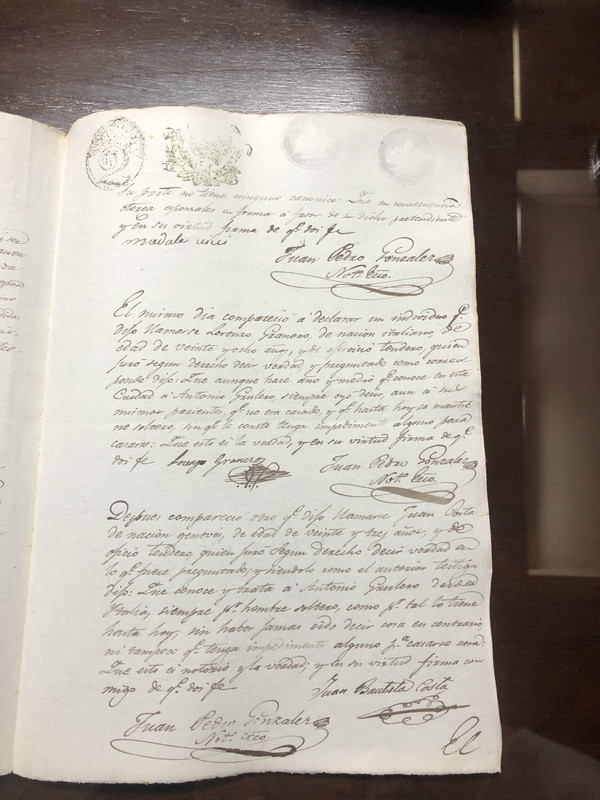 su parte no tiene ninguno canonico: Que en consecuencia
otorga esponsales en forma á favor de su dicho pretendiente
y en su virtud firma de q.e doi fe
Juan Pedro Gonzalez
Not.o Ecco.
El mismo dia compareció á declarar un individuo q.e
dijo llamarse Lorenzo Granero, de nación italiano, de
edad de veinte y ocho años, y de oficio tendero, quien
juró segun derecho decir verdad, y preguntado como corres-
ponde dijo: Que aunque hace año y medio q.e conoce en esta
Ciudad á Antonio Grulero, siempre oyó decir, aun á sus
mismos parientes, q.e no era casado, y q.e hasta hoy se mantie
ne soltero, sin q.e le conste tenga impedimento alguno para
casarse: Que esto es la verdad, y en su virtud firma de q.e
doi fe Lorenzo Granero
Juan Pedro Gonzalez
Not.o Ecco.
Despues compareció otro q.e dijo llamarse Juan Costa
de nación genovés, de edad de veinte y tres años, y de
oficio tendero, quien juró segun derecho decir verdad en
lo q.e fuere preguntado, y siendolo como el anterior testigo
dijo: Que conoce y trata á Antonio Grulero desde
Italia, siempre p.r hombre soltero, como p.r tal lo tiene
hasta hoy, sin haber jamas oido decir cosa en contrario
ni tampoco q.e tenga impedimento alguno p.a casarse
Que esto es notorio y la verdad, y en su virtud firma con
migo de q.e doi fe
Juan Bautista Costa
Juan Pedro Gonzalez
Not.o Ecco.
El